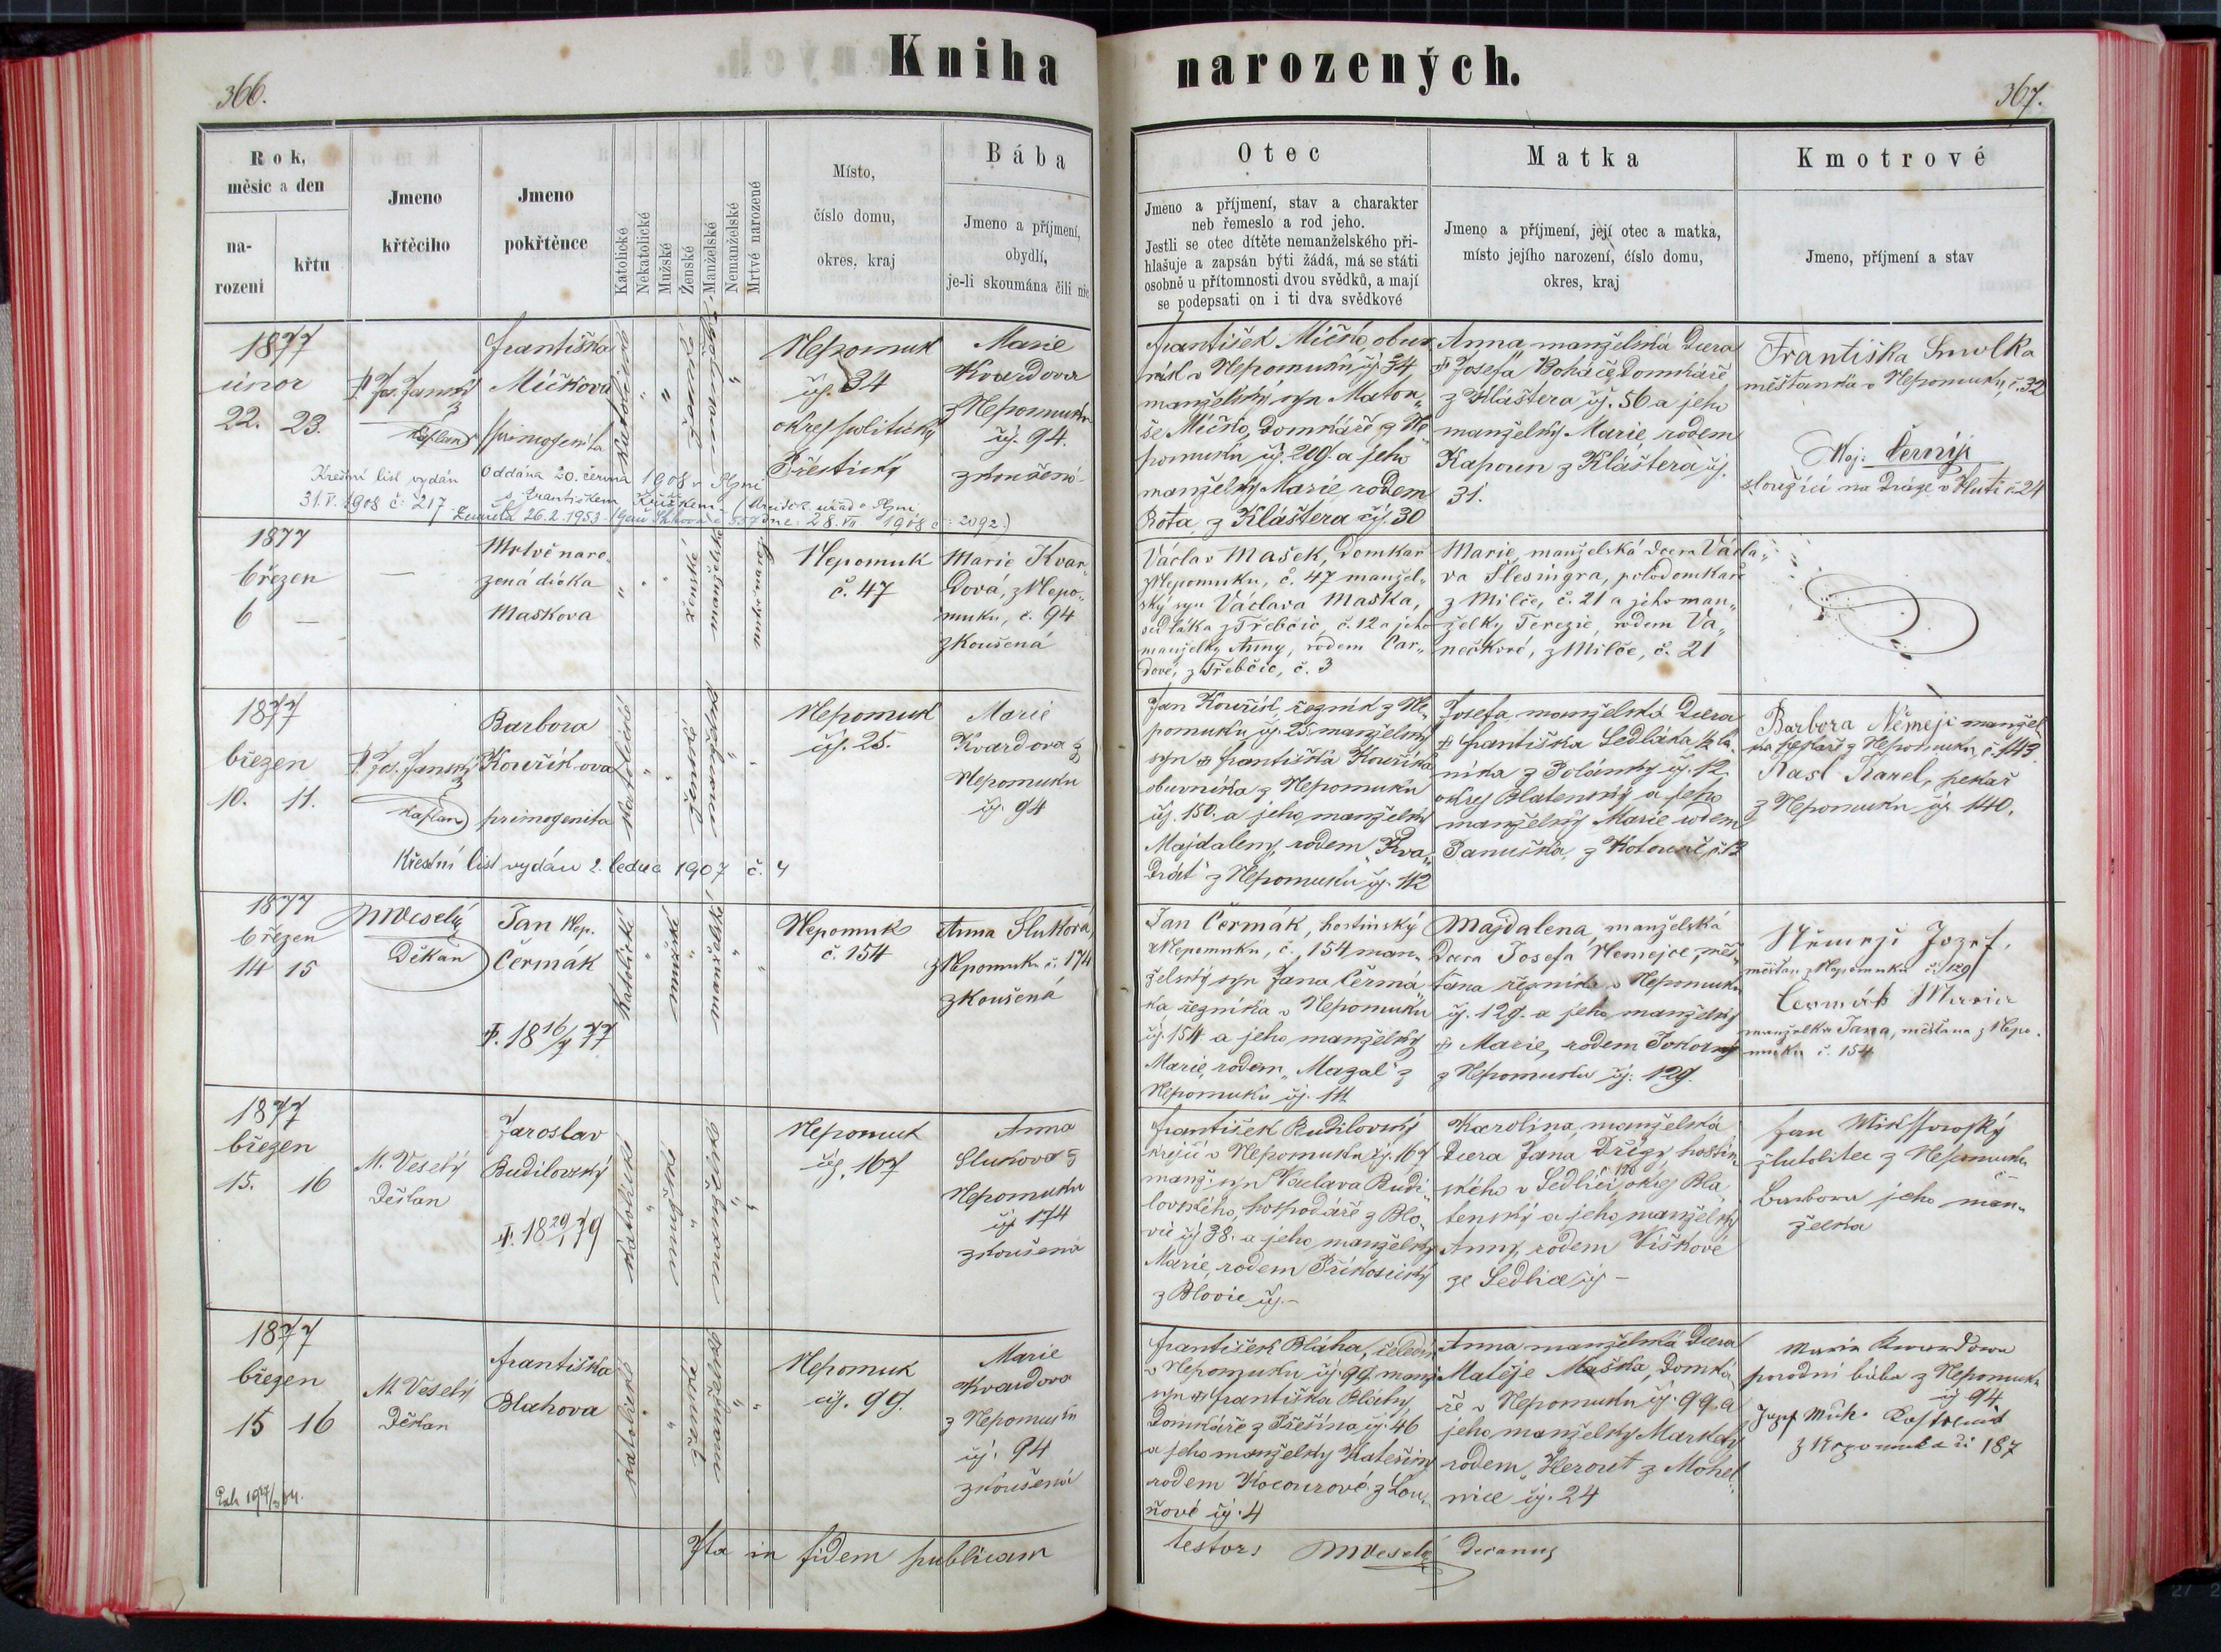 Kniha
narozených.
366.
367.
Rok,
měsic a den
na-
rozeni
křtu
Jmeno
křtěciho
Jmeno
pokřtěnce
Katolické
Nekatolické
Mužské
Ženské
Manželské
Nemanželské
Mrtvé narozené
Místo,
číslo domu,
okres, kraj
Bába
Jmeno a příjmení,
obydlí,
je-li skoumána čili nic
Otec
Jmeno a příjmení, stav a charakter
neb řemeslo a rod jeho.
Jestli se otec dítěte nemanželského při-
hlašuje a zapsán býti žádá, má se státi
osobně u přítomnosti dvou svědků, a mají
se podepsati on i ti dva svědkové
Matka
Jmeno a příjmení, její otec a matka,
místo jejího narození, číslo domu,
okres, kraj
Kmotrové
Jmeno, příjmení a stav
1877
únor
22. 23.
P. Jos. Janský
kaplan
Františka
Míčkova
primogenita
katolické
ženské
manželské
Nepomuk
čj. 34
okres politický
Přestický
Marie
Kvardova
z Nepomuku
čj. 94.
zkoušená
Křestní list vydán
31.V.1908 č: 217
Oddána 20. června 1908 v Plzni
s Františkem
Zemřela 26.2.1953
28.VII 1908 č: 2092.)
František Míčko, obuv
ník v Nepomuku čj. 34,
manželský syn Matou„
še Míčko, domkáře z Ne
pomuku čj. 209. a jeho
manželky Marie, rodem
Rota, z Kláštera čj. 30
Anna, manželská dcera
✠ Josefa Boháče, domkáře
z Kláštera čj. 56 a jeho
manželky Marie, rodem
Kapoun z Kláštera čj.
31.
Františka Smolka
měšťanka v Nepomuku, č. 32
sloužící na dráze v Huti č. 24
1877
březen
6 –
Mrtvě naro„
zená dívka
Maskova
ženské
manželské
mrtvě naroz.
Nepomuk
č. 47
Marie Kvar„
dová, z Nepo„
muku, č. 94
zkoušená
Václav Mašek, domkar
z Nepomuku, č. 47 manžel„
ský syn Václava Maška,
sedláka z Třebčic, č. 12 a jeho
manželky Anny, rodem Car„
dové, z Třebčic, č. 3
Marie, manželská dcera Václa„
va Šlesingra, polodomkaře
z Milče, č. 21 a jeho man„
želky Terezie, rodem Va„
nečkové, z Milče, č. 21
1877
březen
10. 11.
P. Jos. Janský
kaplan
Barbora
Kouříkova
primogenita
katolické
ženské
manželské
Nepomuk
čj. 25.
Marie
Kvardova z
Nepomuku
čj. 94
Křestní list vydán 2. ledna 1907 č. 4
Jan Kouřík, řezník z Ne„
pomuku čj. 25, manželský
syn ✠ Františka Kouříka
obuvníka z Nepomuku
čj. 150. a jeho manželky
Majdaleny, rodem „Kva„
drát" z Nepomuku čj. 112
Josefa, manželská dcera
✠ Františka Sedláka, ½ lá„
níka z Polánky čj. 12,
okres Blatenský a jeho
manželky Marie rodem
Panuška, z Kotouně č. 12
Barbora Němejc manžel
ka z Nepomuku, č. 143.
Rasl Karel, pekař
z Nepomuku čj. 140.
1877
březen
14 15
MVeselý
Děkan
Jan Nep.
Čermák
✠. 18 16/7 77
katolické
mužské
manželské
Nepomuk
č. 154
Anna Slukova,
z Nepomuku č. 174
zkoušená
Jan Čermák, hostinský
z Nepomuku, č. 154 man„
želský syn Jana Čermá„
ka, řezníka v Nepomuku
čj. 154 a jeho manželky
Marie, rodem „Magal" z
Nepomuku čj. 111.
Majdalena, manželská
dcera Josefa Nemejce, měš„
ťana řezníka v Nepomuku
čj. 129. a jeho manželky
✠ Marie, rodem Pokorný
z Nepomuku čj: 129.
Němejc Jozef,
měšťan z Nepomuku č. 129
Čermák Marie
manželka Jana, měšťana z Nepo.
muku č. 154
1877
březen
15. 16
M. Veselý
Děkan
Jaroslav
Budilovský
katolické
mužské
manželské
Nepomuk
čj. 167
Anna
Slukova z
Nepomuku
čj. 174
zkoušená
František Budilovský
krejčí v Nepomuku čj. 167
manž. syn Václava Budi„
lovského, hospodáře z Blo„
vic čj 38. a jeho manželky
Marie, rodem Příkosický
z Blovic čj. –
Karolina, manželská
dcera Jana Dřízy, hostin„
ského v Sedlici, okres Bla„
tenský a jeho manželky
Anny, rodem Viškové
ze Sedlice čj –
Jan
z Nepomuku
č –
Barbora jeho man„
želka
1877
březen
15 16
M. Veselý
Děkan
Františka
Blahova
katolické
ženské
manželské
Nepomuk
čj. 99.
Marie
Kvardova
z Nepomuku
čj. 94
zkoušená
František Bláha, čeledín
v Nepomuku čj. 99, manž
syn ✠ Františka Bláhy,
domkáře z Přešína čj. 46
a jeho manželky Kateřiny
rodem Kocourové, z Lou„
ňové čj. 4
Anna manželská dcera
Matěje Maška, domká„
ře v Nepomuku čj. 99. a
jeho manželky Markety
rodem „Herout z Mohel„
nice čj. 24
Maria Kwardowa
porodní bába z Nepomuku
čj 94
z Nepomuka či 187
Ita in fidem publicam
testor: MVeselý decanus